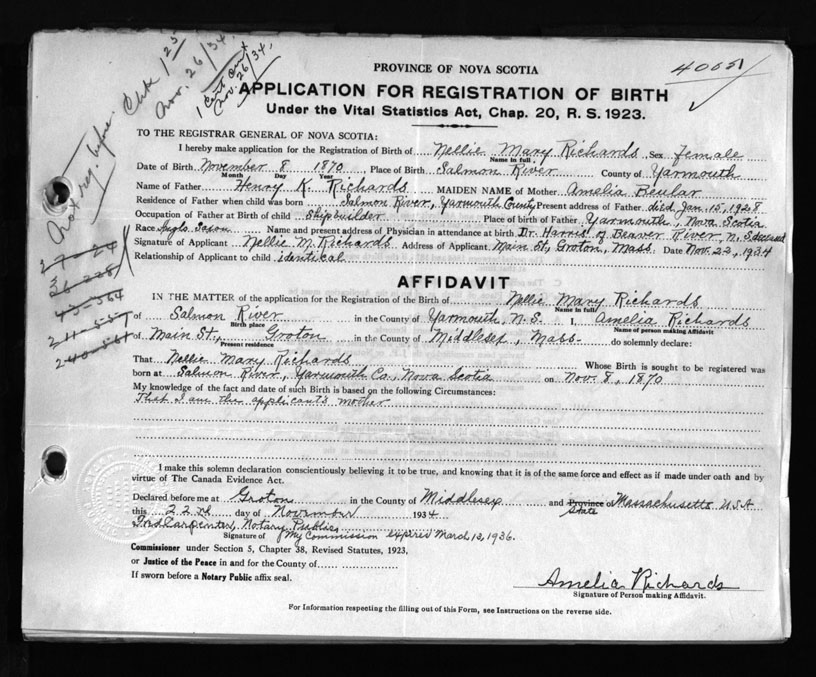 Chke 1 25
Nov. 26/34.
1 Cert out
Nov. 26/34.
Not reg. before.
40051
PROVINCE OF NOVA SCOTIA
APPLICATION FOR REGISTRATION OF BIRTH
Under the Vital Statistics Act, Chap. 20, R. S. 1923.
TO THE REGISTRAR GENERAL OF NOVA SCOTIA:
I hereby make application for the Registration of Birth of Nellie Mary Richards Sex female
Name in full
Date of Birth November 8 1870 Place of Birth Salmon River County of Yarmouth
Month Day Year
Name of Father Henry K. Richards MAIDEN NAME of Mother Amelia Beular
Residence of Father when child was born Salmon River, Yarmouth County Present address of Father died Jan. 15, 1928
Occupation of Father at Birth of child Shipbuilder Place of birth of Father Yarmouth, Nova Scotia
Race Anglo Saxon Name and present address of Physician in attendance at birth Dr. Harris of Beaver River, N. S. deceased
Signature of Applicant Nellie M. Richards Address of Applicant Main St, Groton, Mass. Date Nov. 22, 1934
Relationship of Applicant to child identical
AFFIDAVIT
IN THE MATTER of the application for the Registration of the Birth of Nellie Mary Richards
Name in full
of Salmon River in the County of Yarmouth, N.S. I, Amelia Richards
Birth place Name of person making Affidavit
of Main St., Groton in the County of Middlesex, Mass. do solemnly declare:
Present residence
That Nellie Mary Richards Whose Birth is sought to be registered was
born at Salmon River, Yarmouth Co., Nova Scotia on Nov. 8, 1870
My knowledge of the fact and date of such Birth is based on the following Circumstances:
That I am the applicant's mother
I make this solemn declaration conscientiously believing it to be true, and knowing that it is of the same force and effect as if made under oath and by
virtue of The Canada Evidence Act.
Declared before me at Groton in the County of Middlesex and Province of Massachusetts USA
State
this 22nd day of November 1934
Carpenter, Notary Public
Signature of My Commission expires March 12, 1936.
Commissioner under Section 5, Chapter 38, Revised Statutes, 1923,
or Justice of the Peace in and for the County of
If sworn before a Notary Public affix seal.
Amelia Richards
Signature of Person making Affidavit.
For Information respecting the filling out of this Form, see Instructions on the reverse side.